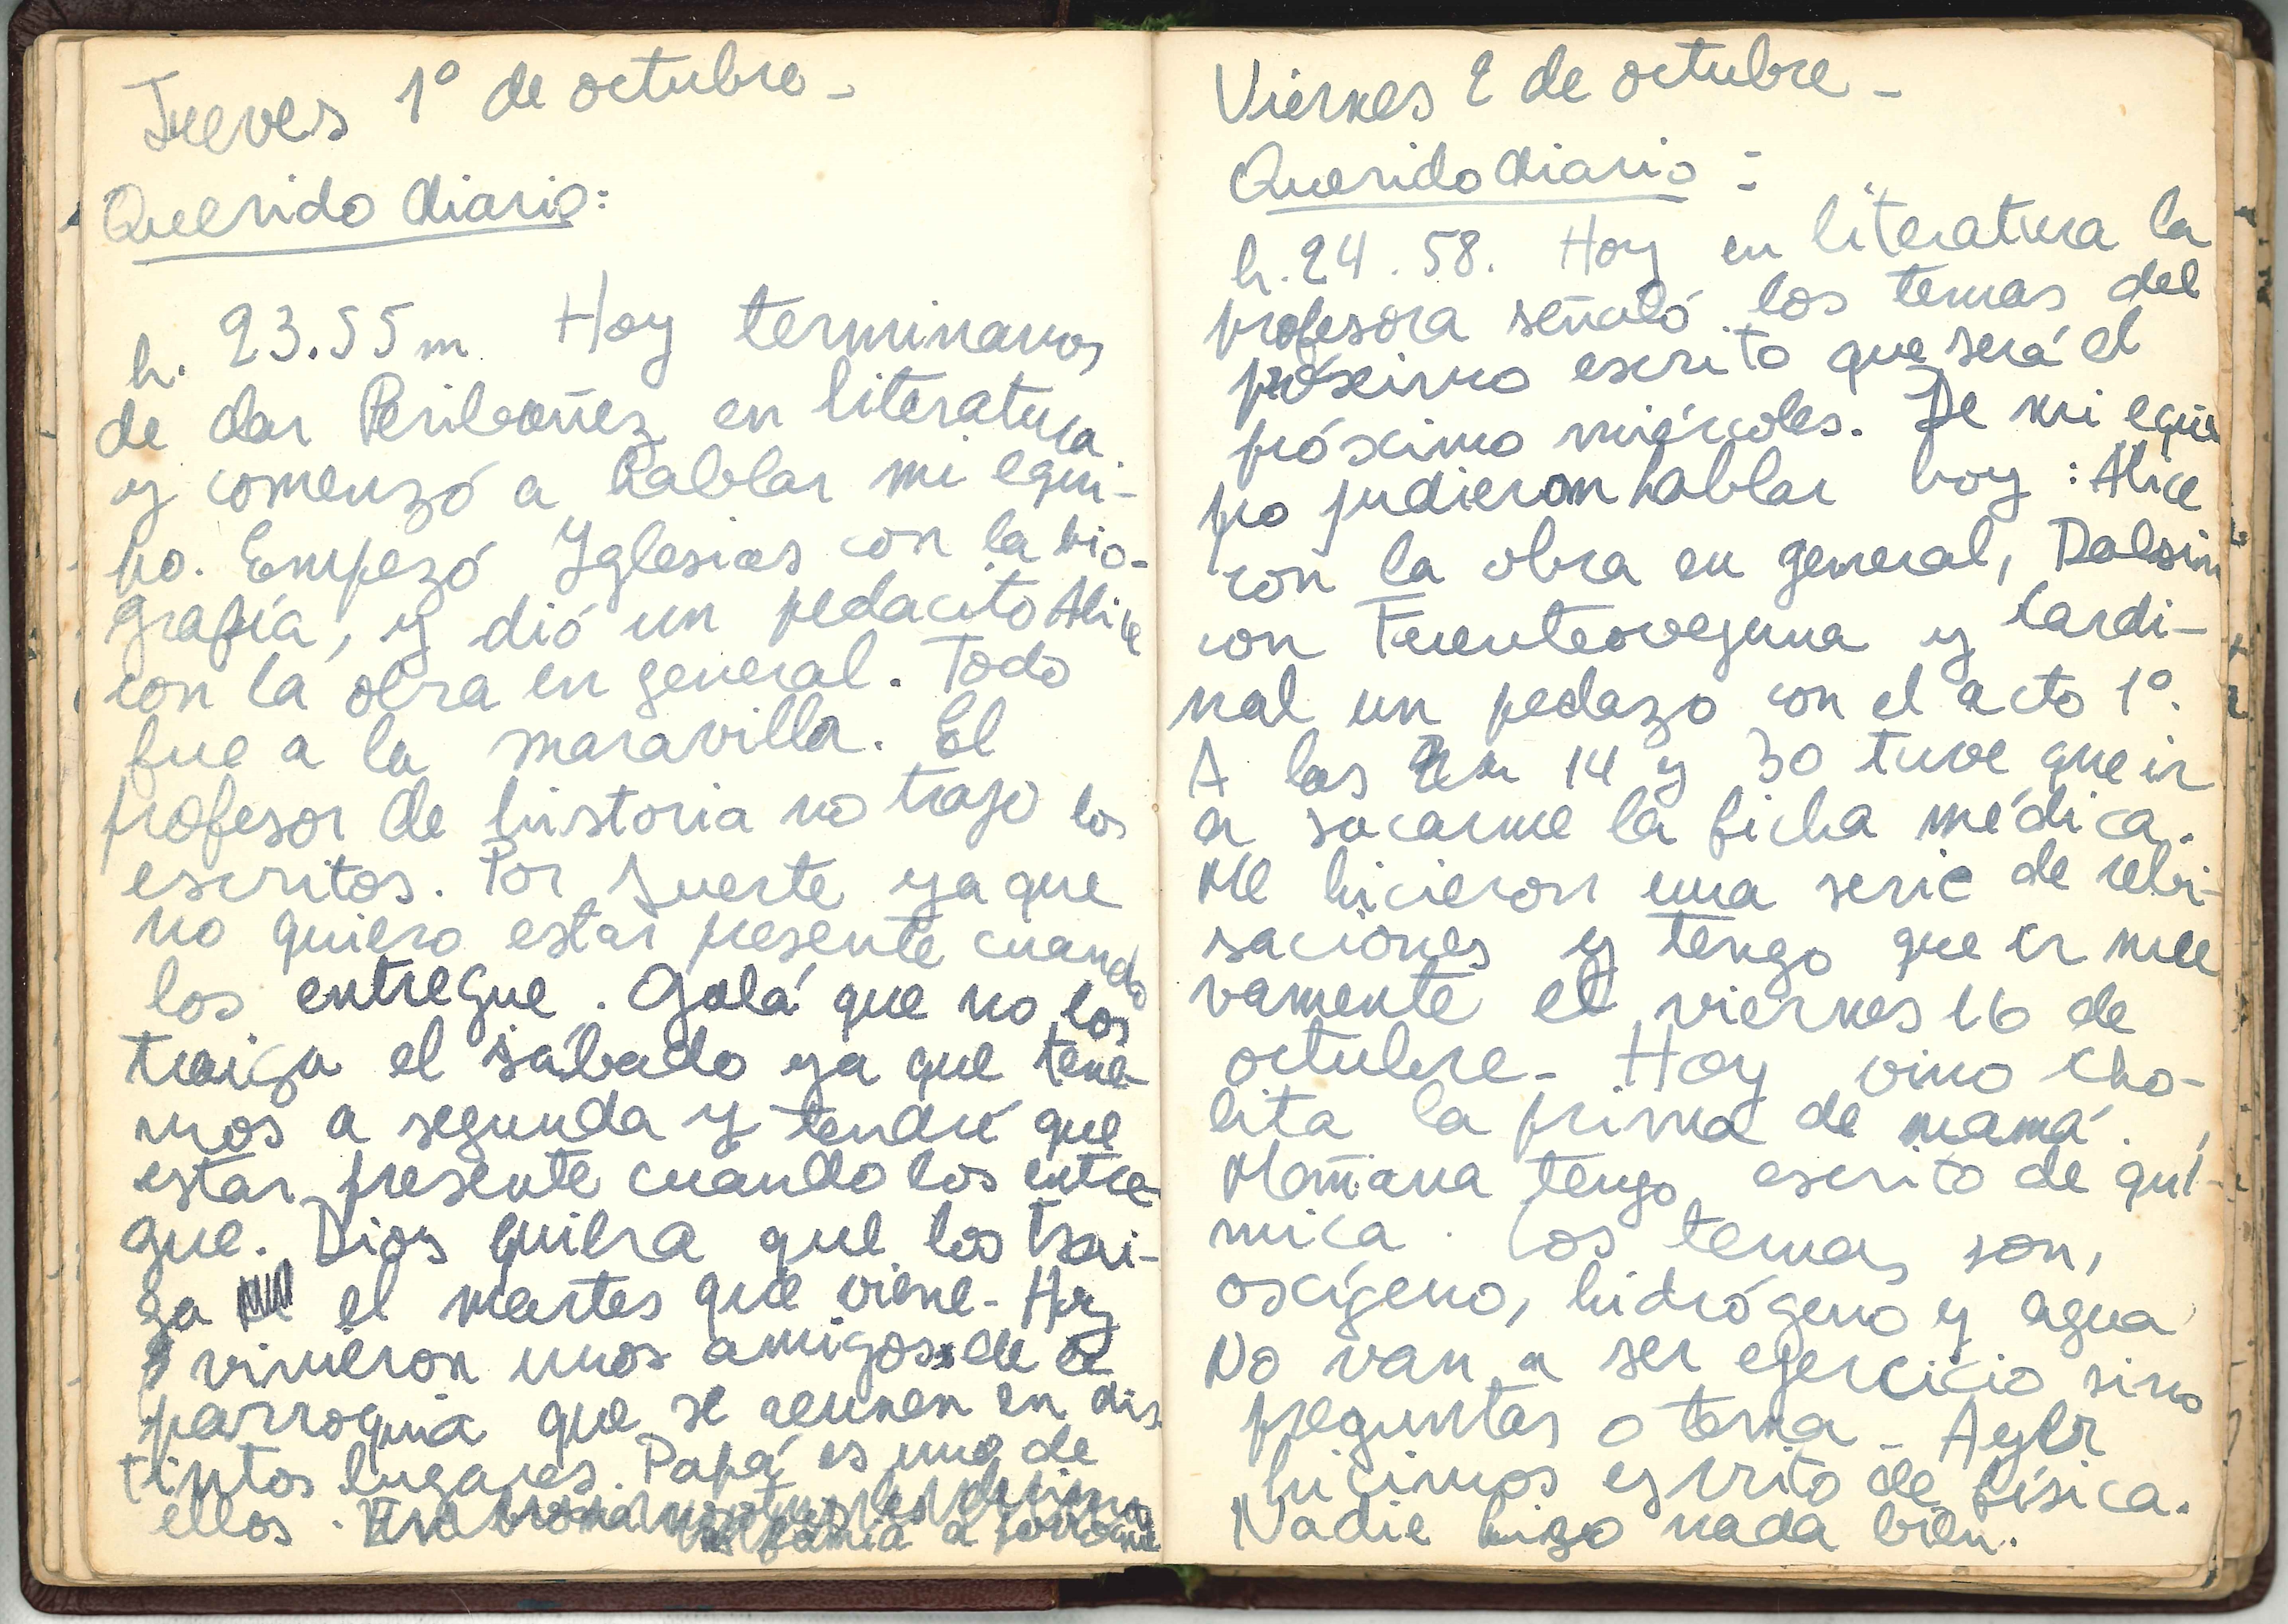 Jueves 1º de octubre -
Querido diario:
h. 23.55 m Hoy terminamos
de dar Peribañez en literatura
y comenzó a hablar mi equi-
po. Empezó Yglesias con la bio-
grafía, y dió un pedacito Alice
con la obra en general. Todo
fue a la maravilla. El
profesor de historia no trajo los
escritos. Por suerte ya que
no quiero estar presente cuando
los entregue. Ojalá que no los
traiga el sábado ya que tene-
mos a segunda y tendré que
estar presente cuando los entre-
gue. Dios quiera que los trai-
ga el martes que viene - Hoy
vinieron unos amigos de la
parroquia que se reunen en dis
tintos lugares. Papá es uno de
ellos.
Viernes 2 de octubre -
Querido diario :
h. 24.58. Hoy en literatura la
profesora señaló los temas del
próximo escrito que será el
próximo miércoles. De mi equi
po pudieron hablar hoy : Alice
con la obra en general, Dalsin
con Fuenteovejuna y Cardi-
nal un pedazo con el acto 1º.
A las 14 y 30 tuve que ir
a sacarme la ficha médica.
Me hicieron una serie de rebi-
saciones y tengo que ir nue
vamente el viernes 16 de
octubre - Hoy vino Cho-
lita la prima de mamá.
Mañana tengo escrito de quí-
mica. Los temas son,
oscígeno, hidrógeno y agua
No van a ser ejercicio sino
preguntas o tema - Ayer
hicimos escrito de física.
Nadie hizo nada bien.